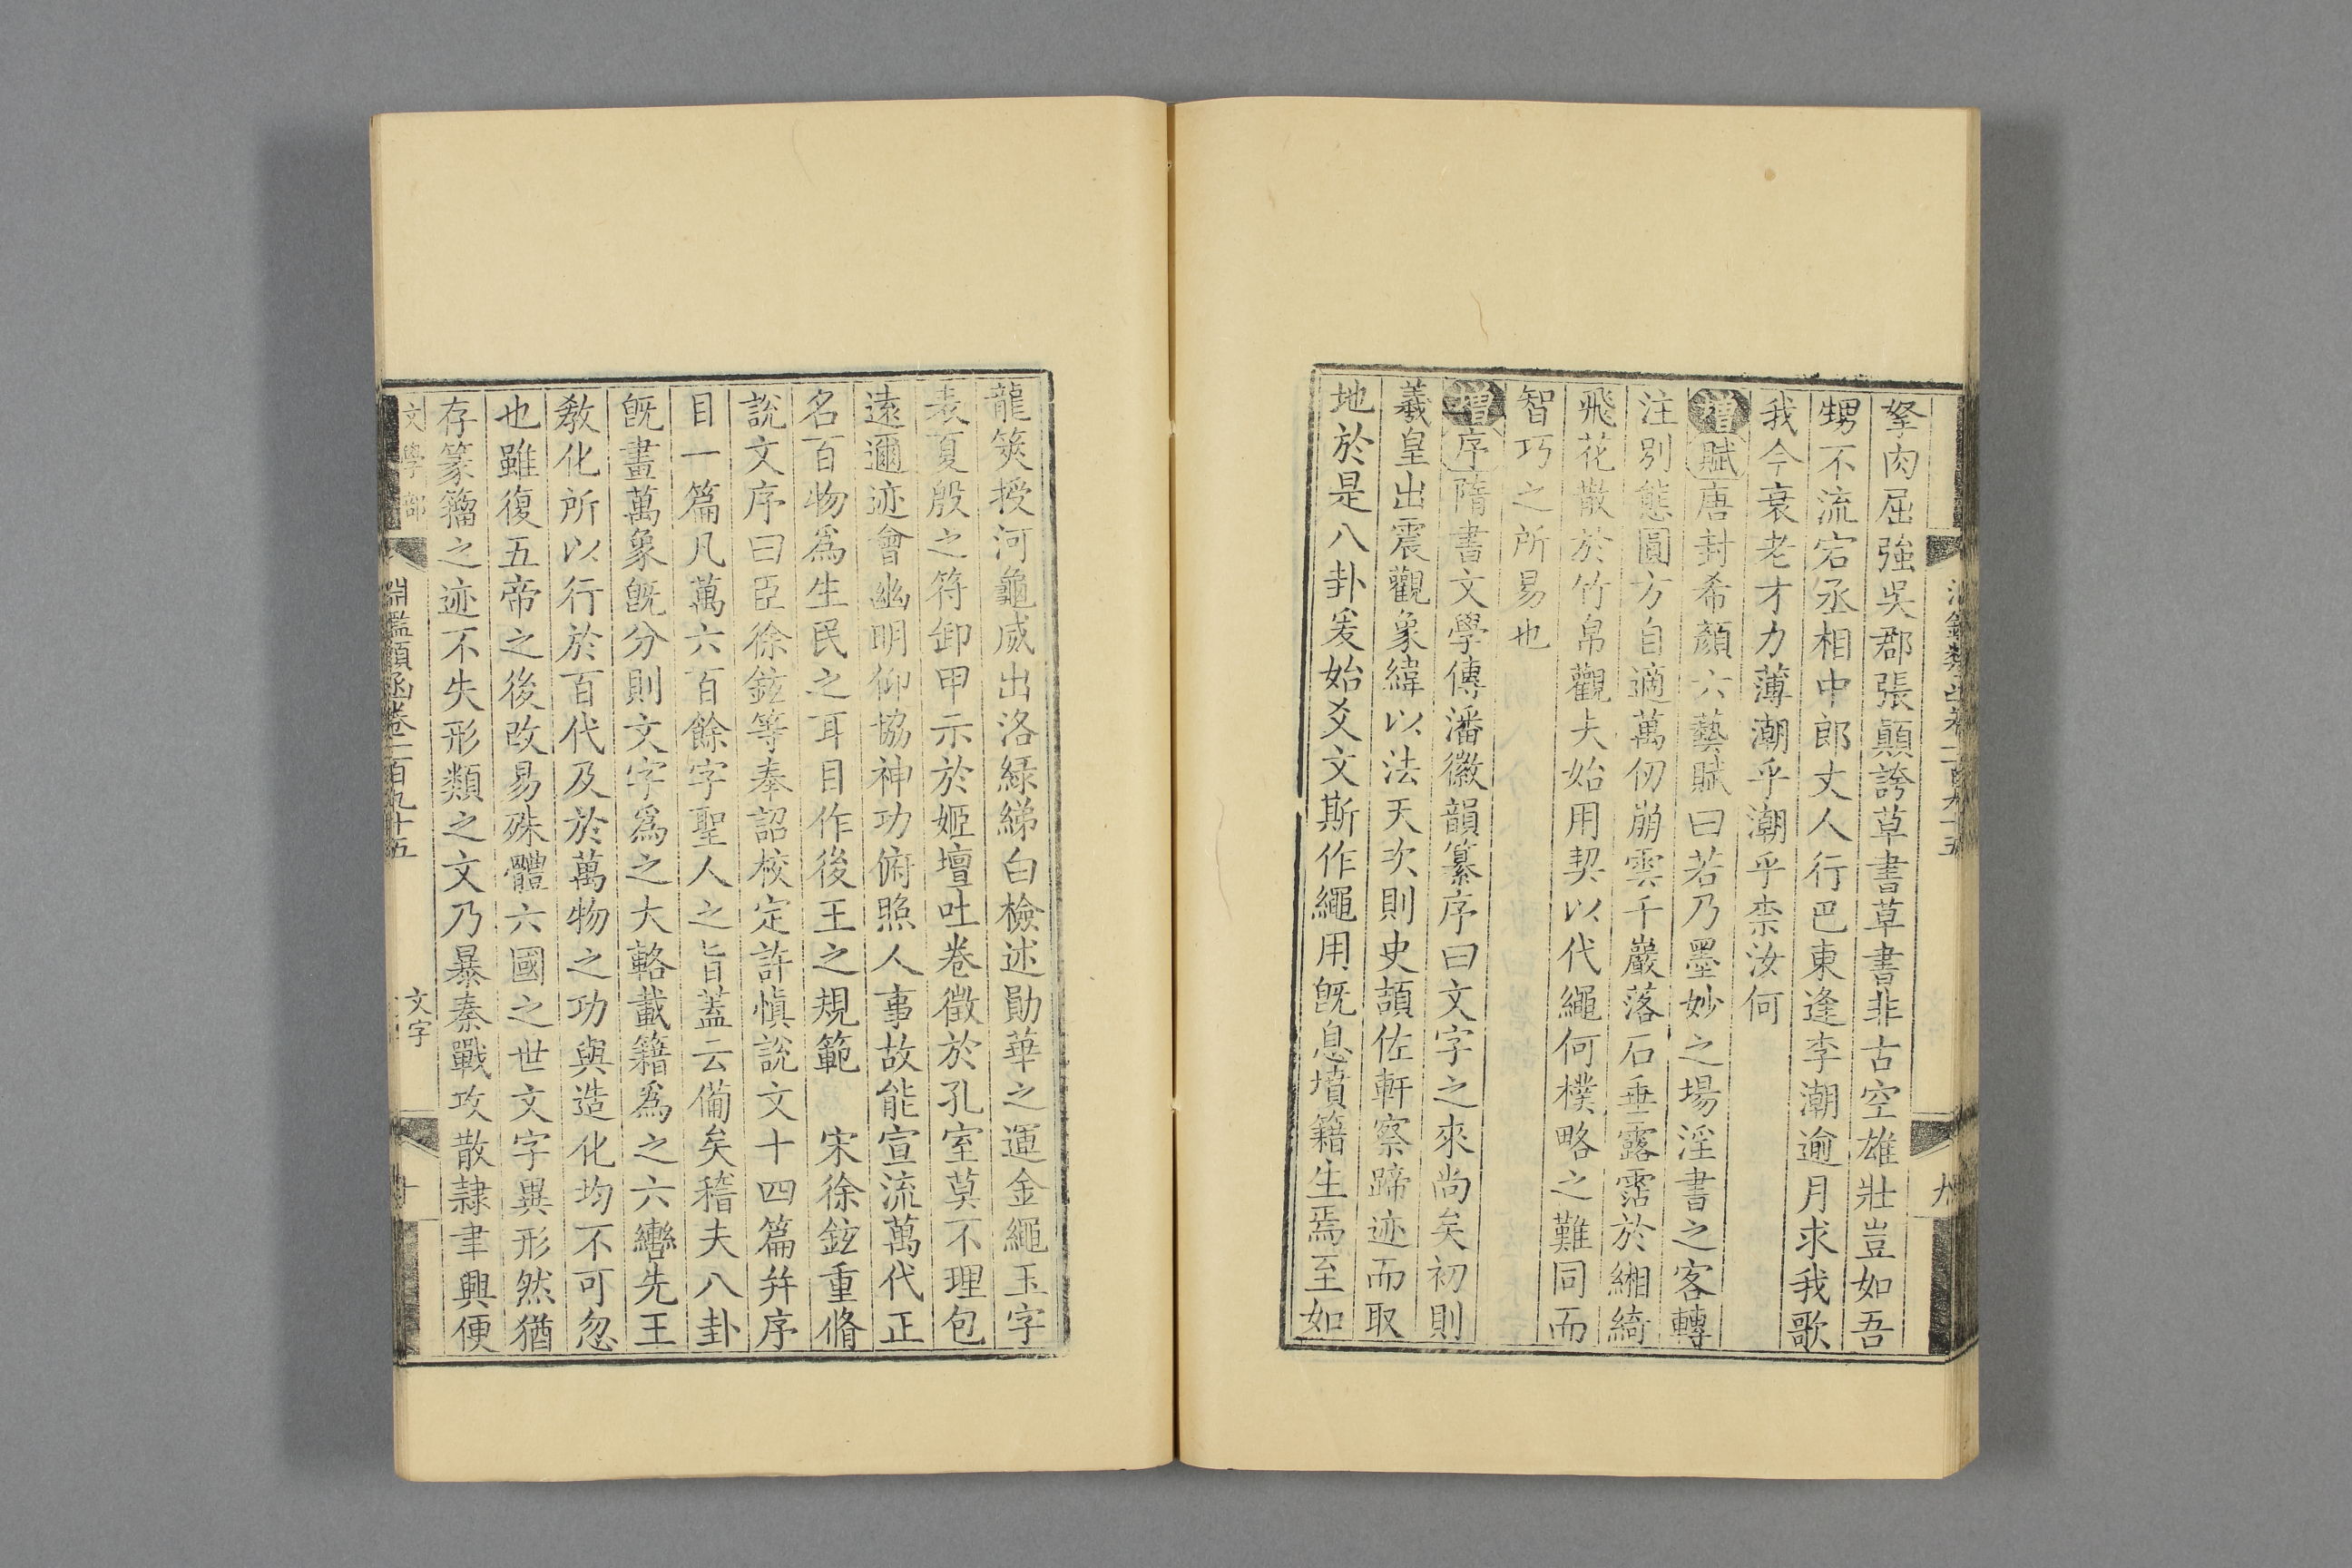 拏肉屈強吳郡張顛誇草書草書非古空雄壯豈如吾
甥不流宕丞相中郎丈人行巴東逢李潮逾月求我歌
我今衰老才力薄潮乎潮乎柰汝何
增賦唐封希顏六藝賦曰若乃墨妙之場淫書之客轉
注別態圓方自適萬仞崩雲千巖落石垂露霑於緗綺
飛花散於竹帛觀夫始用契以代繩何樸略之難同而
智巧之所易也
增序隋書文學傳潘徽韻纂序曰文字之來尚矣初則
羲皇出震觀象緯以法天次則史頡佐軒察蹄迹而取
地於是八卦爰始爻文斯作繩用旣息墳籍生焉至如
龍筴授河龜威出洛綠綈白檢述勛華之運金繩玉字
表夏殷之符卸甲示於姬壇吐卷徵於孔室莫不理包
遠邇迹會幽明仰協神功俯照人事故能宣流萬代正
名百物爲生民之耳目作後王之規範　宋徐鉉重脩
說文序曰臣徐鉉等奉詔校定許愼說文十四篇幷序
目一篇凡萬六百餘字聖人之旨蓋云備矣稽夫八卦
旣畫萬象旣分則文字爲之大輅載籍爲之六轡先王
敎化所以行於百代及於萬物之功與造化均不可忽
也雖復五帝之後改易殊體六國之世文字異形然猶
存篆籀之迹不失形類之文乃暴秦戰攻散隷聿興便
文學部
淵鑑類函卷一百九十五
文字
十